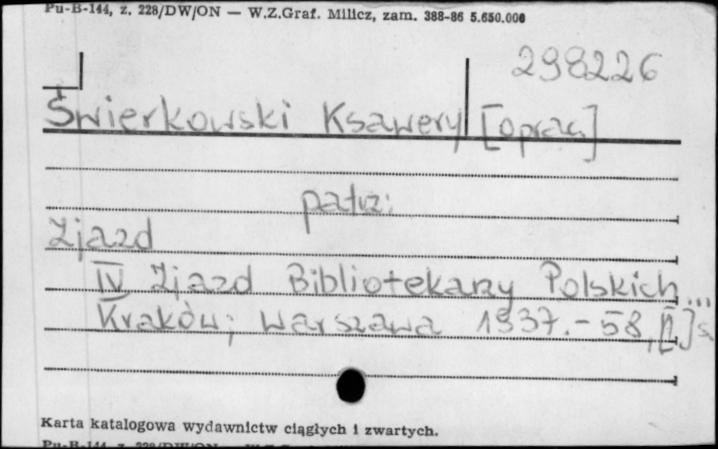 Pu-B-144, z. 228/DW/ON — W.Z.Graf. Milicz, zam. 388-86 5.650.000
298226
Świerkowski Ksawery [oprac]
patrz:
Zjazd
IV Zjazd Bibliotekarzy Polskich...
Kraków; Warszawa 1937.-58, [1] s
Karta katalogowa wydawnictw ciągłych i zwartych.
Pu-B-144, z. 228/DW/ON — W.Z.Graf.